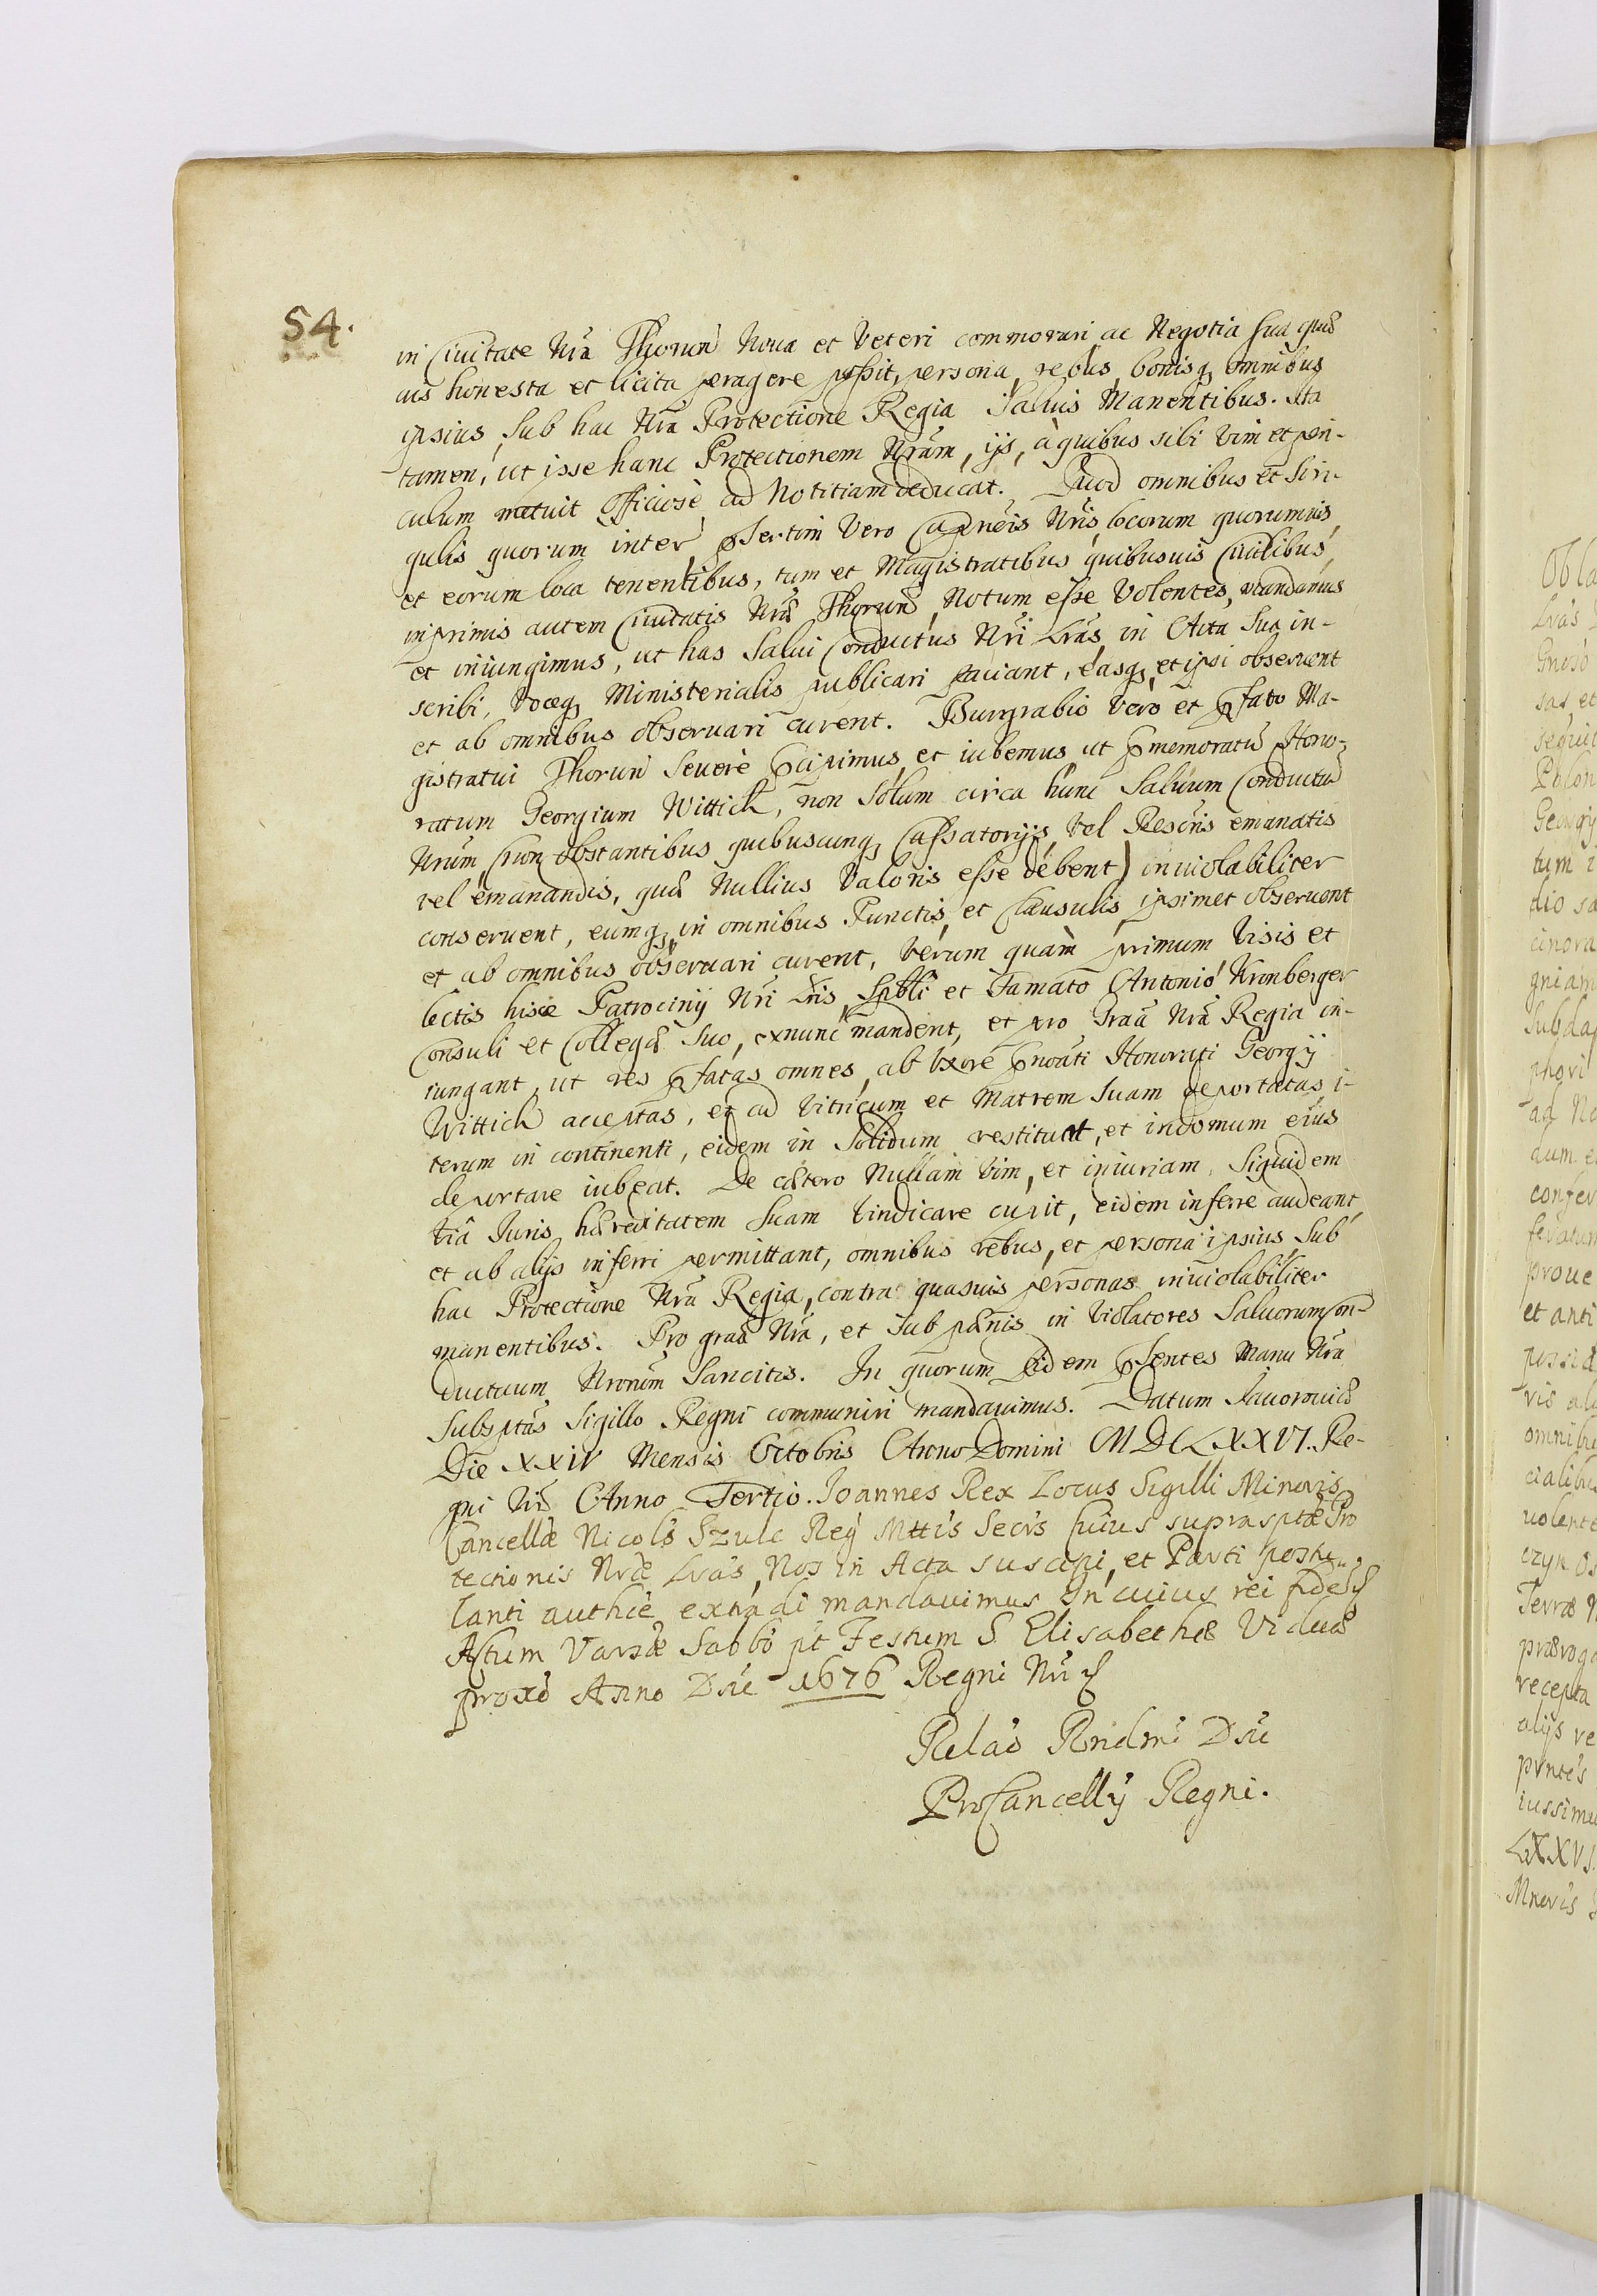 54.
in Ciuitate Nrã Thorun̄ Noua et Veteri commorari, ac Negotia sua quæ
uis honesta et licita peragere possit, persona, rebus, bonisq, omnibus
ipsius, sub hac Nrã Protectione Regia Saluis Manentibus. Ita
tamen, ut ipse hanc Protectionem Nrãm, ijs, à quibus sibi vim et peri-
culum metuit officiosè ad Notitiam deducat. Quod omnibus et Sin-
gulis quorum inter̃, p̃sertim Vero Capn̄eis Nrĩs, locorum quorumuis,
et eorum loca tenentibus, tum et Magistratibus quibusuis Ciuilibus,
inprimis autem Ciuitatis Nræ̃ Thorun̄, Notum esse Volentes, mandamus
et iniungimus, ut has Salui Conductus Nrĩ Lrãs, in Acta Sua in-
scribi, Voceq, Ministerialis publicari faciant, easq, et ipsi obseruent
et ab omnibus obseruari curent. Burgrabio Vero et p̃fato Ma-
gistratui Thorun̄ Seuerè p̃cipimus, et iubemus, ut p̃memoratũ Hono-
ratum Georgium Wittich, non Solum circa hunc Saluum Conductũ
Nrũm, (non obstantibus quibuscunq, Cassatorijs, Vel Rescr̃is emanatis
vel emanandis, quæ Nullius Valoris esse debent) inuiolabiliter
conseruent, eumq, in omnibus Punctis, et Clausulis, ipsimet obseruent
et ab omnibus obseruari curent, Verum quàm primum Visis et
lectis hisce Patrocinij Nrĩ Lrĩs, Spbli et Famato Antonio Kronberger
Consuli et Collegæ Suo, exnunc mandent, et pro Graã Nrã Regia in-
iungant, ut res p̃fatas omnes, ab Vxore p̃noãti Honorati Georgij
Wittich acceptas, et ad Vitricum et Matrem Suam deportatas, i-
terum in continenti, eidem in Solidum restituat, et in domum eius
deportare iubeat. De cætero Nullam Vim, et iniuriam, Siquidem
Viâ Iuris, hæreditatem Suam Vindicare cupit, eidem inferre audeant,
et ab alijs inferri permittant, omnibus rebus, et persona ipsius, Sub
hac Protectione Nrã Regia, contra quasuis personas inuiolabiliter
manentibus. Pro graã Nrã, et Sub pænis in Violatores Saluorum Con-
ductuum Nrorũm Sancitis. In quorum fidem p̃sentes Manu Nrã
Subsptãs Sigillo Regni communiri mandauimus. Datum Jauorouiæ
Die XXIV Mensis Octobris Anno Domini MDCLXXVI. Re-
gni Nrĩ Anno Tertio. Ioannes Rex Locus Sigilli Minoris
Cancellæ Nicols Szulc Reg Mttis Secrs huius suprasptæ Pro
tectionis Nræ Lras, Nos in Acta suscepi, et Parti postu-
lanti authce extradi mandauimus In cuius rei fidem
Actum Varsæ Sabbo pt Festum S. Elisabethæ Viduæ
proxo Anno Dni 1676 Regni Nri
Relao Rndmi Dni
ProCancellij Regni.